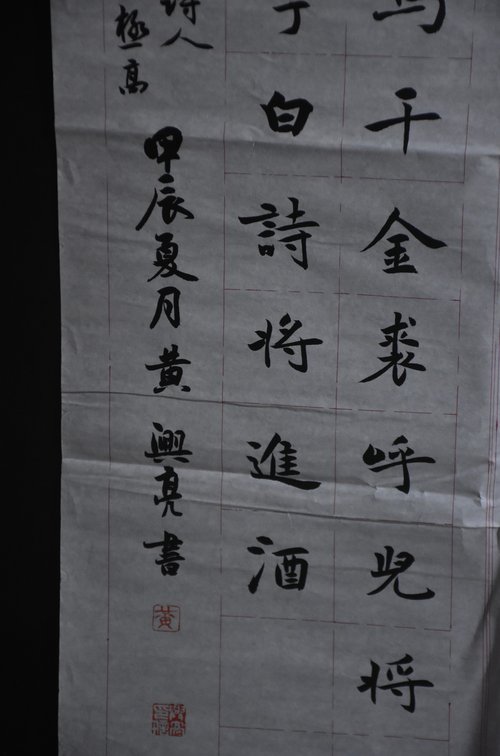 馬千金裘呼兒将
李白詩将進酒
詩人
極高
甲辰夏月黄興亮書
黄